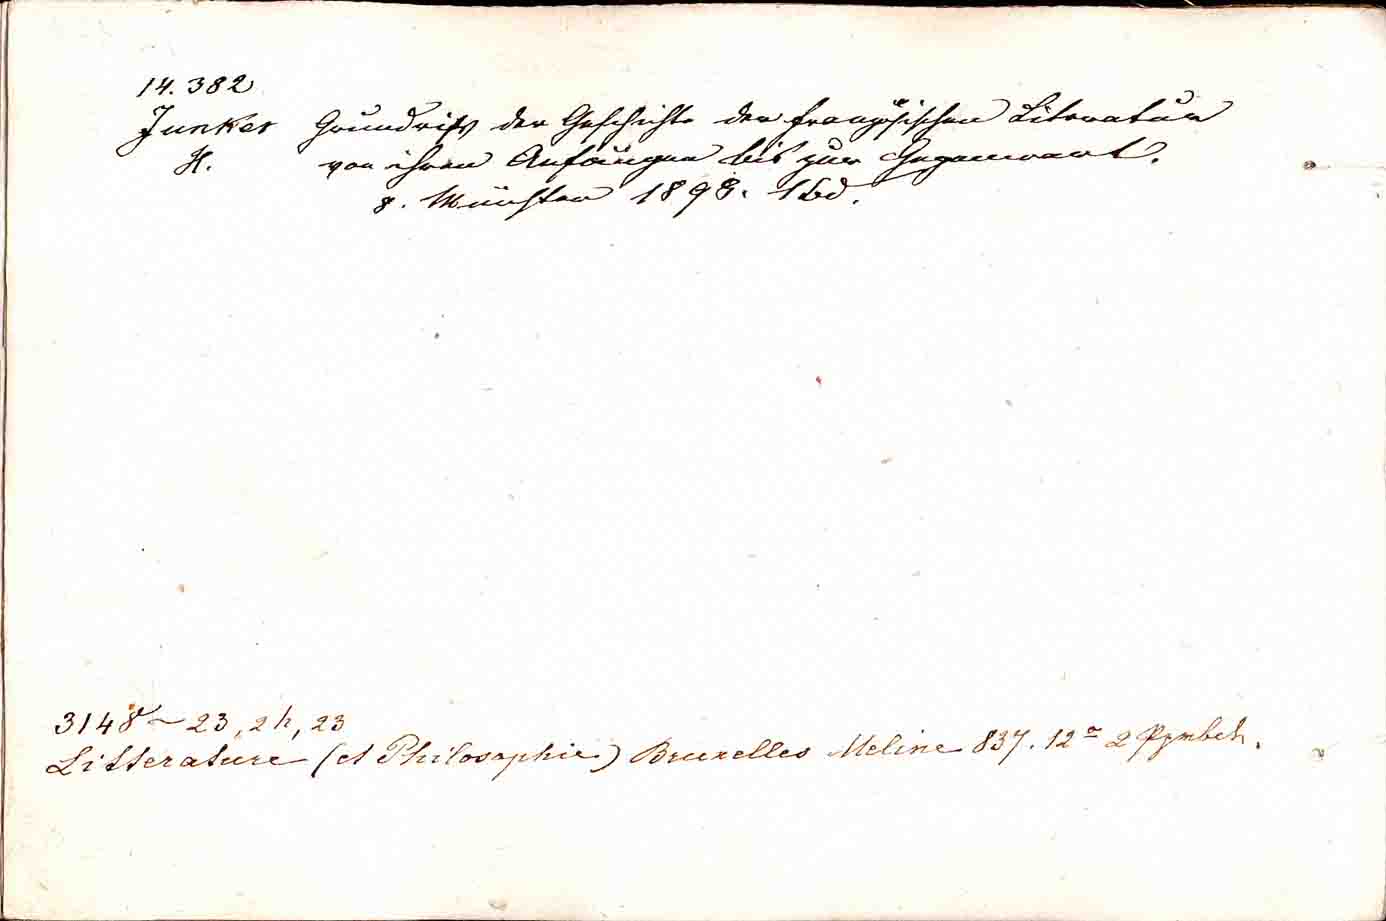 14.382
Junker Grundriss der Geschichte der französischen Literatur
H. von ihren Anfängen bis zur Gegenwart.
8. Münster 1898. 1 Bd.
3148 ~ 23, 2h, 23
Litterature (et Philosophie) Bruxelles Meline 837. 12º 2